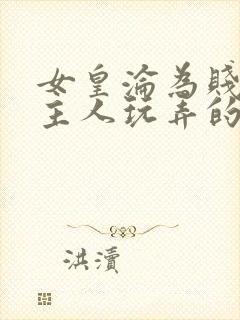 女皇淪為賤
主人玩弄的
洪瀆